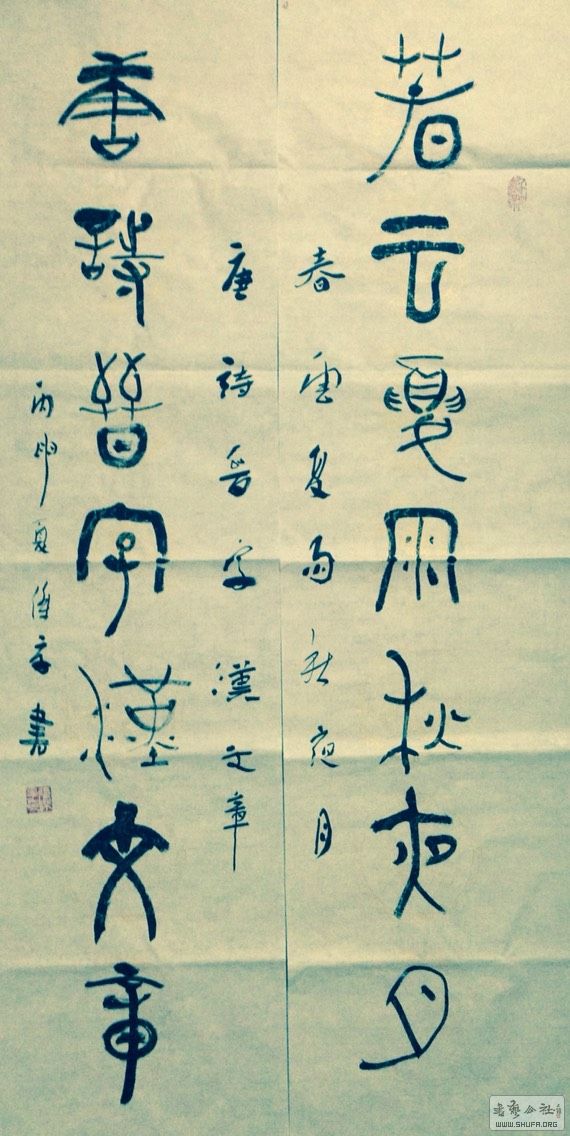 春云夏雨秋夜月
春雲夏雨秋夜月
唐詩晉字漢文章
唐詩晉字漢文章
丙申夏
書
WWW.SHUFA.ORG